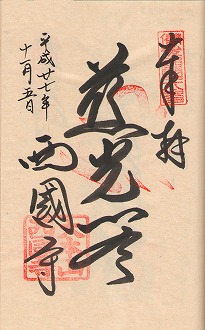 奉拝
慈光尊
西國寺
平成廿七年
十一月五日